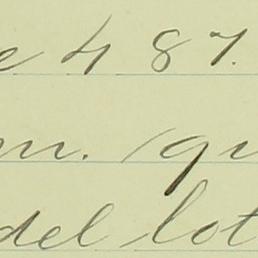 e 4 87.
m. (qu
del lot